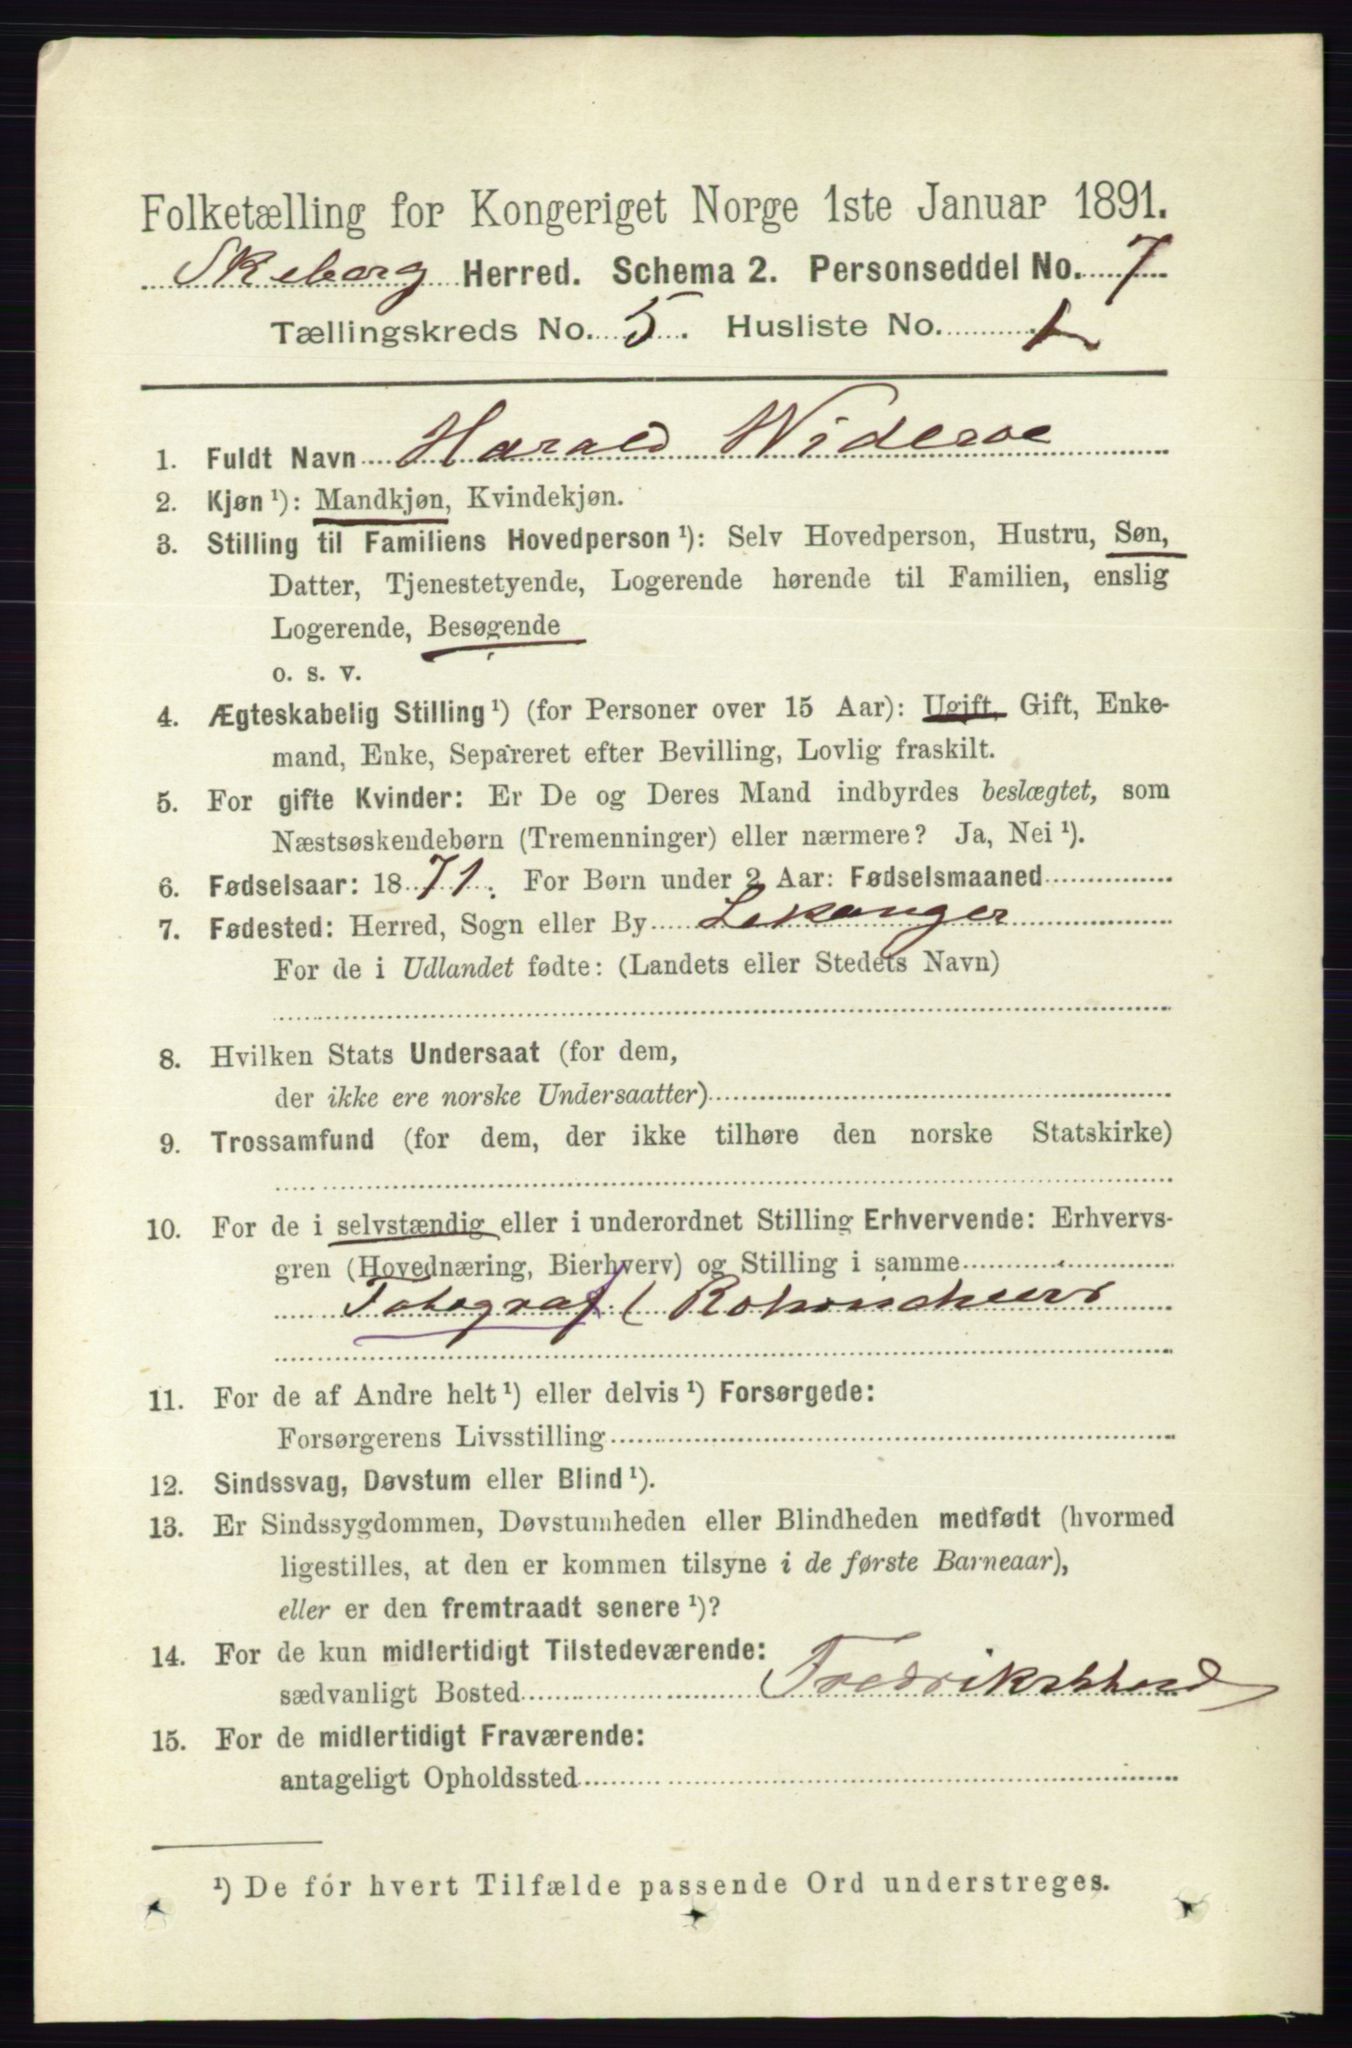 Folketælling for Kongeriget Norge 1ste Januar 1891.
Skeberg Herred. Schema 2. Personseddel No. 7
Tællingskreds No. 5. Husliste No. 1
1. Fuldt Navn Harald Wideroe
2. Kjøn ¹): Mandkjøn, Kvindekjøn.
3. Stilling til Familiens Hovedperson ¹): Selv Hovedperson, Hustru, Søn,
Datter, Tjenestetyende, Logerende hørende til Familien, enslig
Logerende, Besøgende
o. s. v.
4. Ægteskabelig Stilling ¹) (for Personer over 15 Aar): Ugift, Gift, Enke-
mand, Enke, Separeret efter Bevilling, Lovlig fraskilt.
5. For gifte Kvinder: Er De og Deres Mand indbyrdes beslægtet, som
Næstsøskendebørn (Tremenninger) eller nærmere? Ja, Nei ¹).
6. Fødselsaar: 1871. For Børn under 2 Aar: Fødselsmaaned
7. Fødested: Herred, Sogn eller By Lekanger
For de i Udlandet fødte: (Landets eller Stedets Navn)
8. Hvilken Stats Undersaat (for dem,
der ikke ere norske Undersaatter)
9. Trossamfund (for dem, der ikke tilhøre den norske Statskirke)
10. For de i selvstændig eller i underordnet Stilling Erhvervende: Erhvervs-
gren (Hovednæring, Bierhverv) og Stilling i samme
Fotograf (
11. For de af Andre helt ¹) eller delvis ¹) Forsørgede:
Forsørgerens Livsstilling
12. Sindssvag, Døvstum eller Blind ¹).
13. Er Sindssygdommen, Døvstumheden eller Blindheden medfødt (hvormed
ligestilles, at den er kommen tilsyne i de første Barneaar),
eller er den fremtraadt senere ¹)?
14. For de kun midlertidigt Tilstedeværende:
sædvanligt Bosted Fredrikshhald
15. For de midlertidigt Fraværende:
antageligt Opholdssted
¹) De for hvert Tilfælde passende Ord understreges.